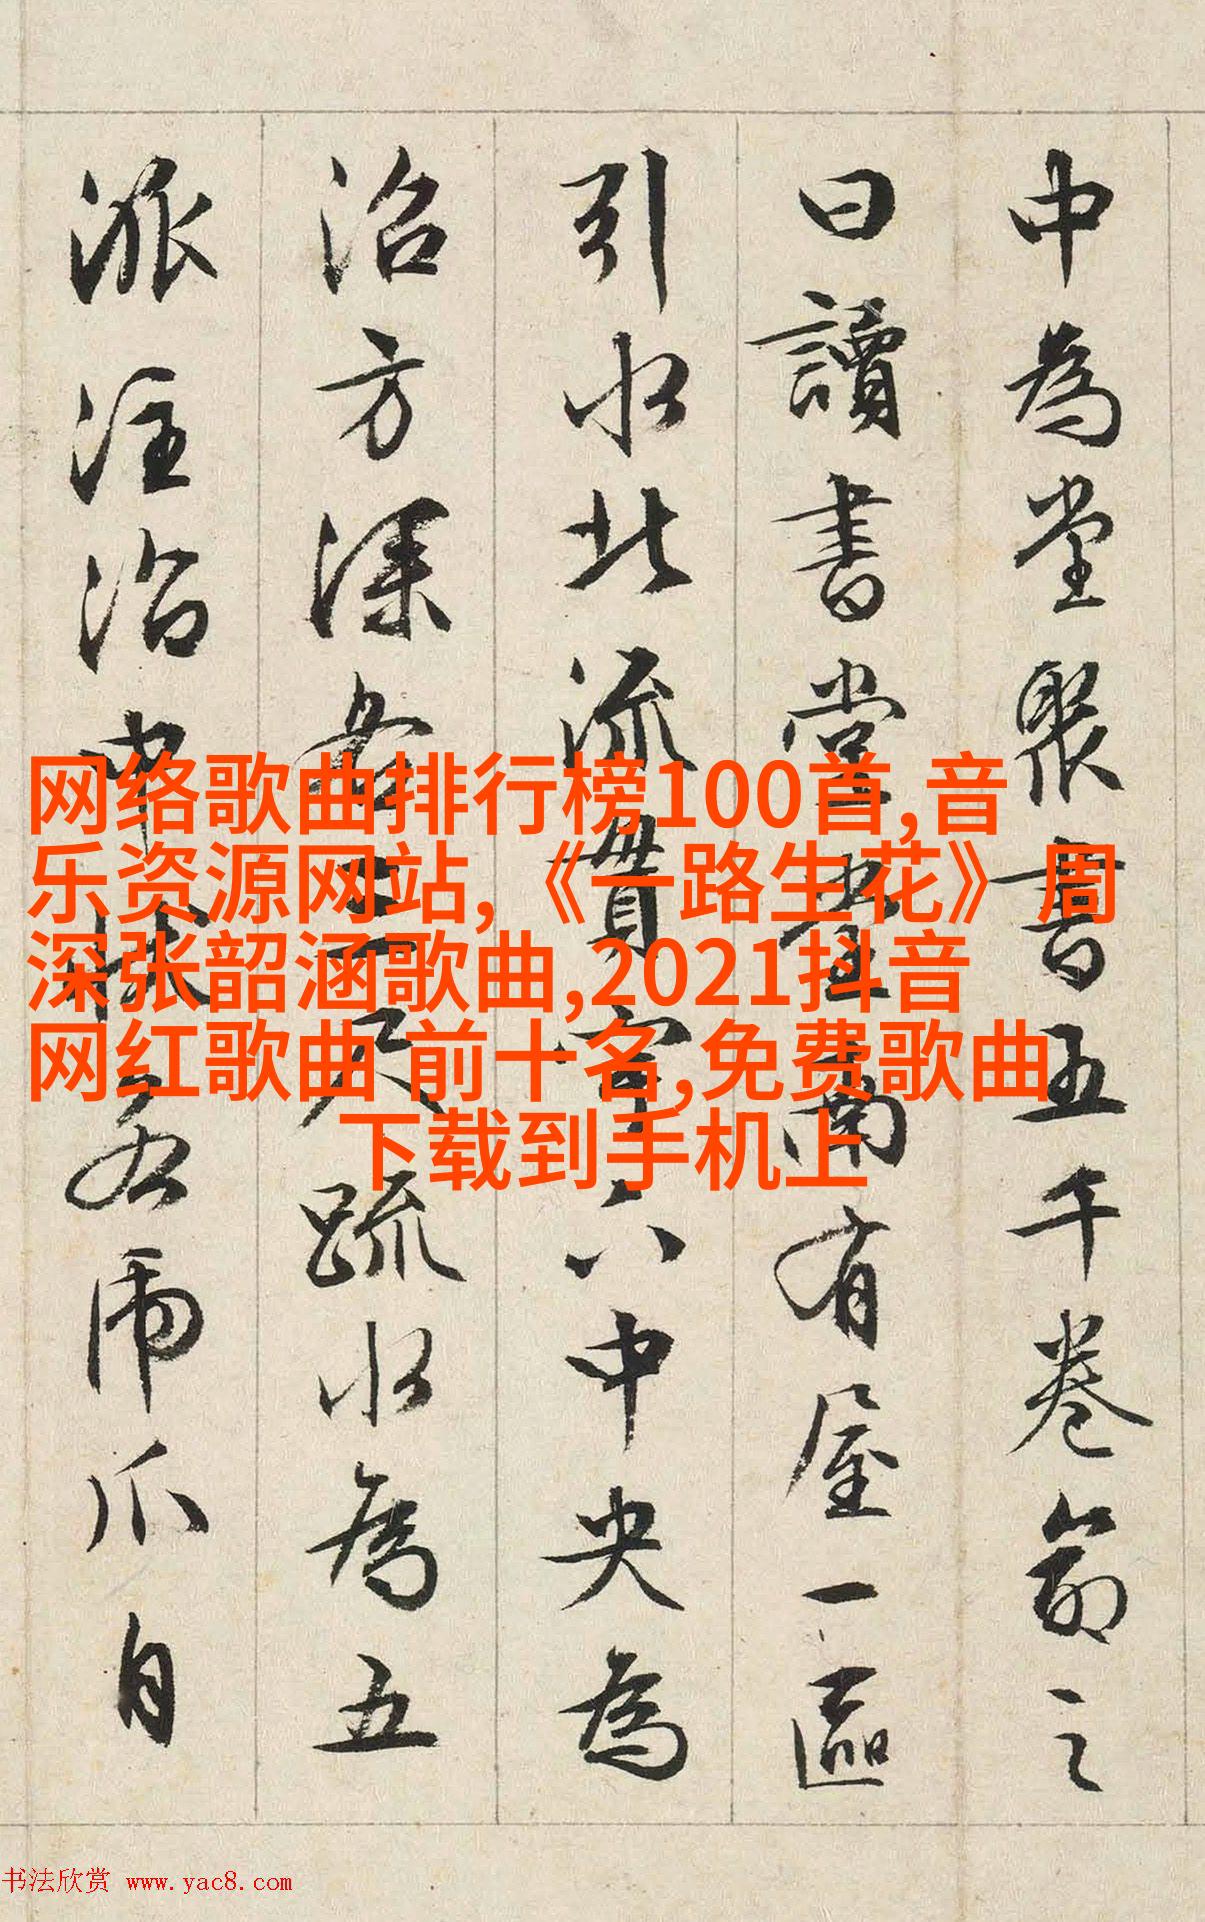 中為堂聚書五千卷命之
曰讀書堂堂南有屋一區
引水北流貫宇下中央為
沼方深各三尺疏水為五
派注沼中狀若虎爪自
网络歌曲排行榜100首,音
乐资源网站,《一路生花》周
深张韶涵歌曲,2021抖音
网红歌曲 前十名,免费歌曲
下载到手机上
书法欣赏 www.yac8.com